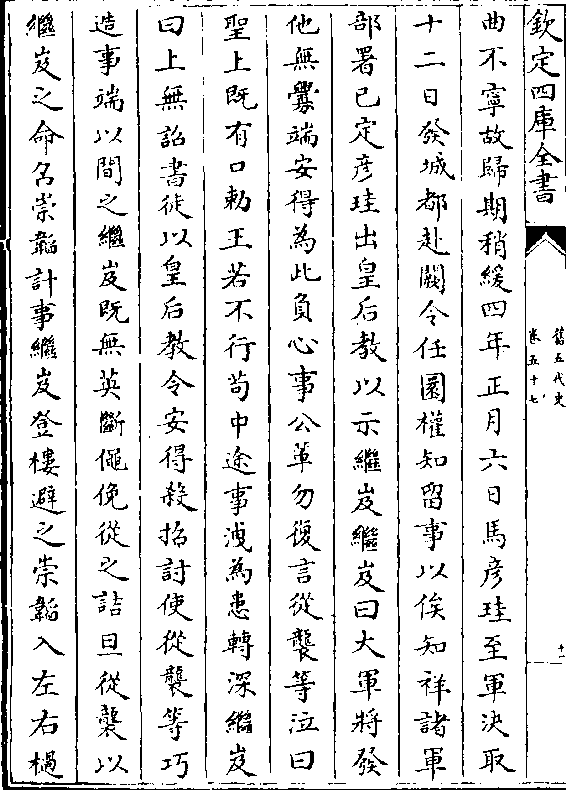 欽定四庫全書
舊五代史
卷五十七
十一
曲不寧故歸期稍緩四年正月六日馬彦珪至軍決取
十二日發城都赴闕令任圜權知留事以俟知祥諸軍
部署已定彦珪出皇后教以示繼岌繼岌曰大軍將發
他無釁端安得為此負心事公軰勿復言從襲等泣曰
聖上既有口勅王若不行茍中途事洩為患轉深繼岌
曰上無詔書徒以皇后教令安得殺招討使從襲等巧
造事端以間之繼岌既無英斷僶俛從之詰旦從襲以
繼岌之命召崇韜計事繼岌登樓避之崇韜入左右檛